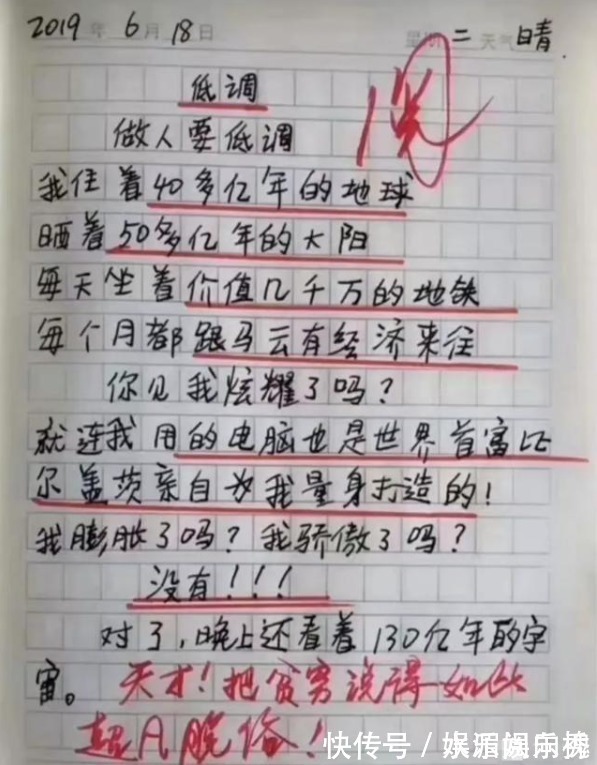 2019 年 6 月 18 日 星期 二 天气 晴
阅
低调
做人要低调
我住着40多亿年的地球
晒着50多亿年的太阳
每天坐着价值几千万的地铁
每个月都跟马云有经济来往
你见我炫耀了吗?
就连我用的电脑也是世界首富比
尔盖茨亲自为我量身打造的!
我膨胀了吗?我骄傲了吗?
没有!!!
对了,晚上还看着130亿年的宇
宙。天才!把贫穷说得如此
超凡脱俗!
快传号 /